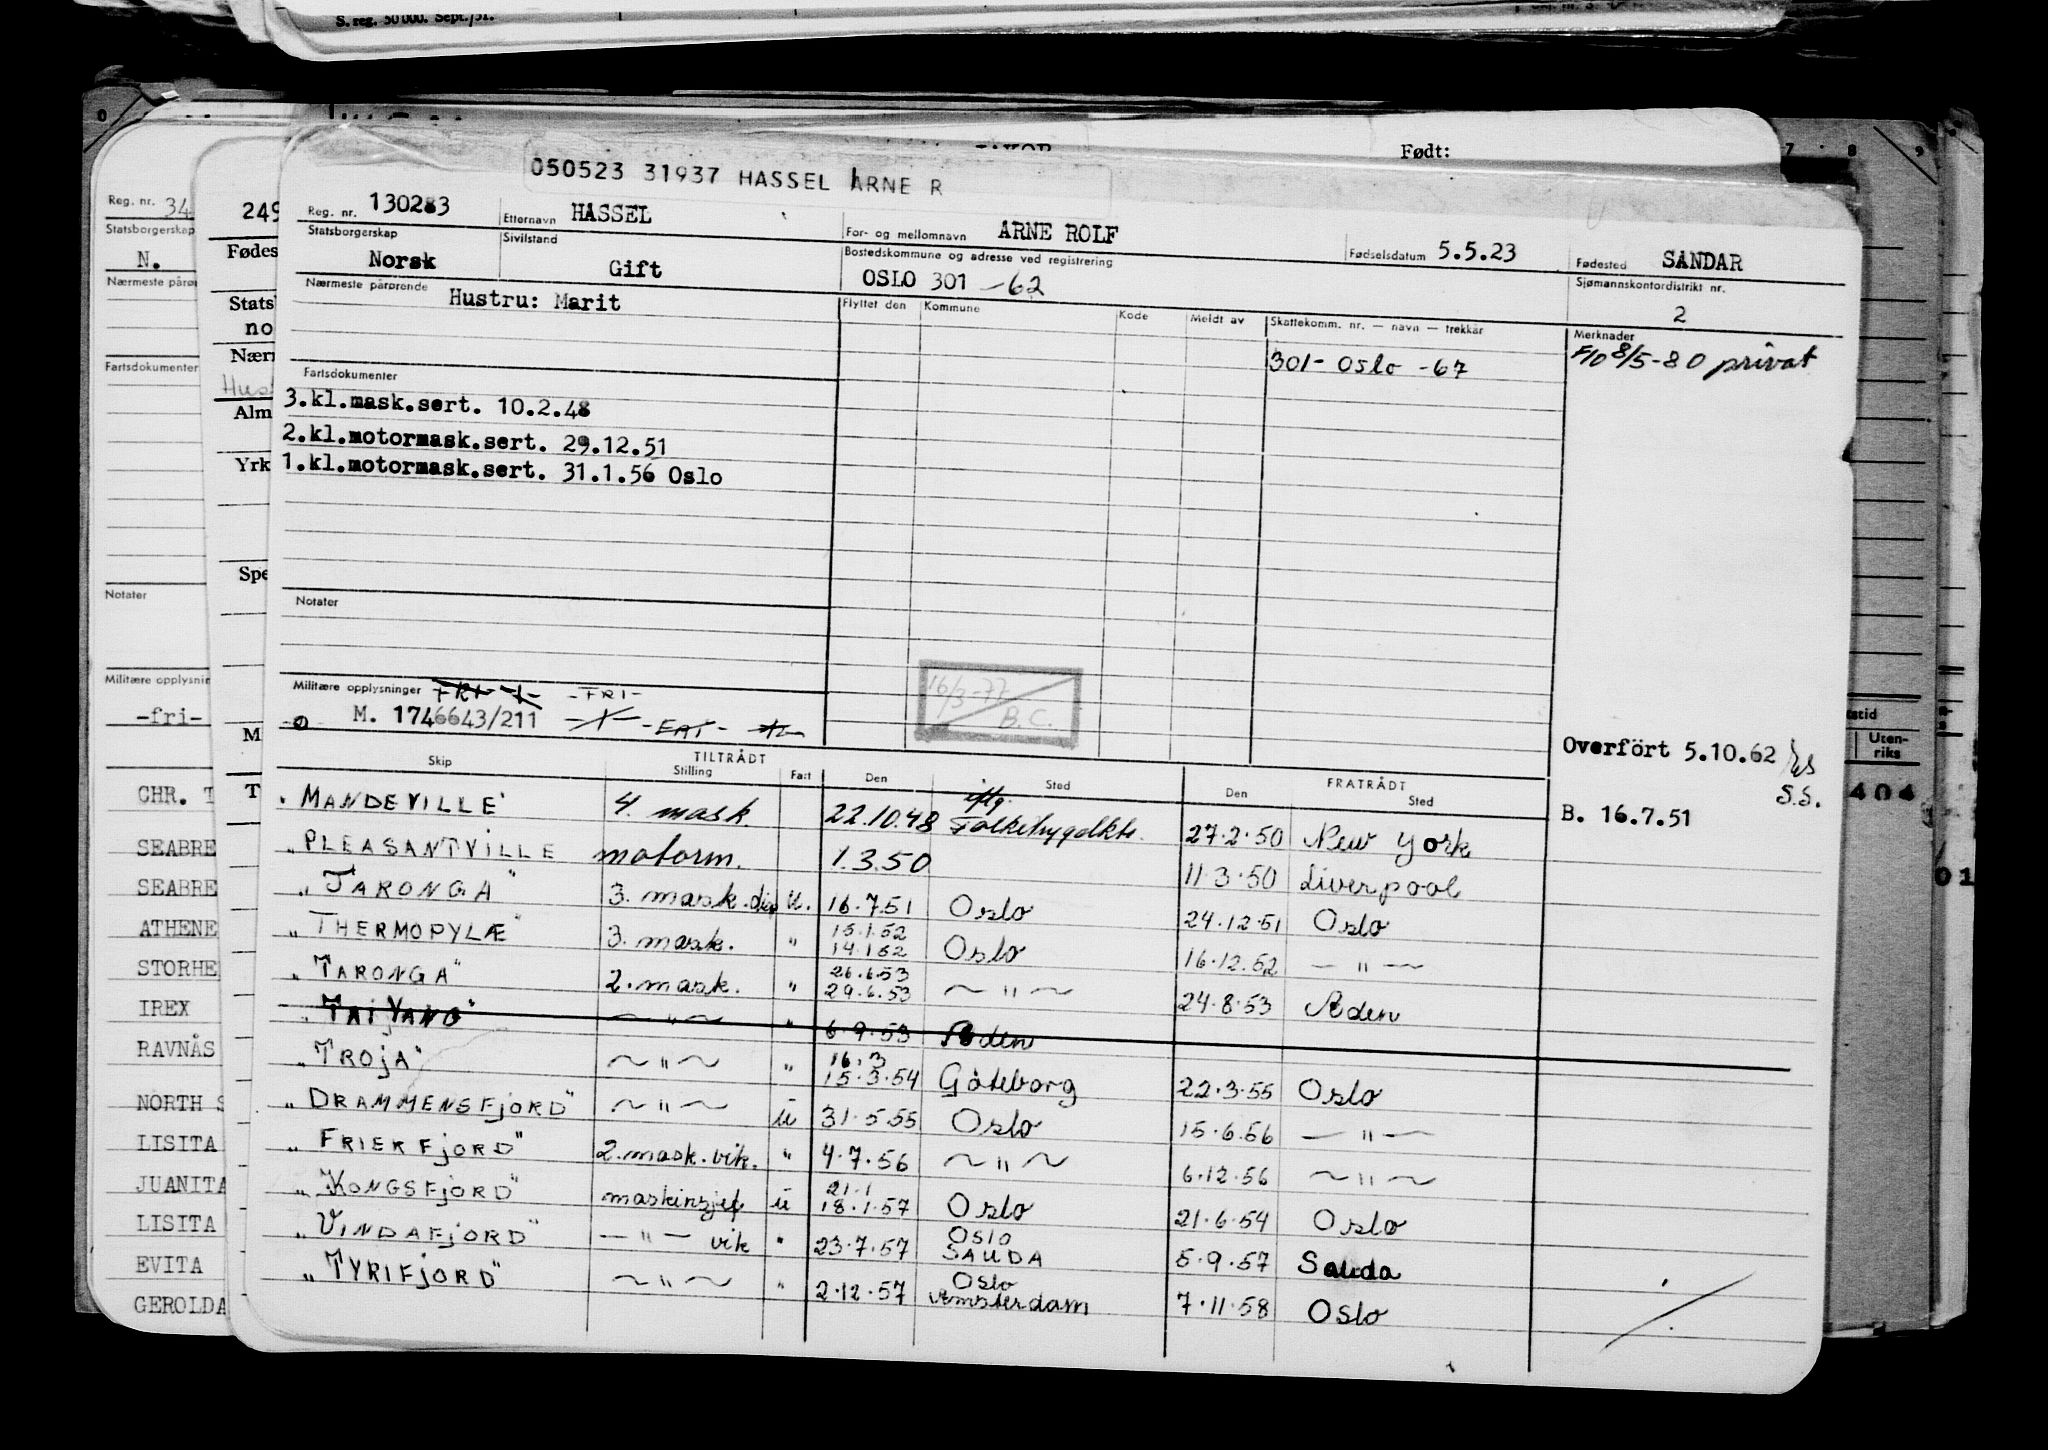 S. reg. 50 000. Sept./51.
Født:
050523 31937 HASSEL ARNE R
Reg. nr. 130283 Etternavn HASSEL For- og mellomnavn ARNE ROLF Fødselsdatum 5.5.23 Fødested SANDAR
Statsborgerskap Norsk Sivilstand Gift Bostedskommune og adresse ved registrering OSLO 301 -62 Sjømannskontordistrikt nr. 2
Nærmeste pårørende Hustru: Marit Flyttet den Kommune Kode Meldt av Skattekomm. nr. — navn — trekkår Merknader
301- Oslo -67 F/O 8/5-80 privat
Fartsdokumenter
3.kl.mask.sert. 10.2.48
2.kl.motormask.sert. 29.12.51
1.kl.motormask.sert. 31.1.56 Oslo
Notater
16/3-77 B.C.
Militære opplysninger FRI -FRI-
M. 1746643/211 -EAT-
Overfört 5.10.62
S.S.
B. 16.7.51
TILTRÅDT FRATRÅDT
Skip Stilling Fart Den Sted Den Sted
"MANDEVILLE" 4. mask. 22.10.48 27.2.50 New York
"PLEASANTVILLE motorm. 1.3.50 11.3.50 Liverpool
"TARONGA" 3. mask. U. 16.7.51 Oslo 24.12.51 Oslo
"THERMOPYLÆ" 3. mask. " 15.1.52 14.1.52 Oslo 16.12.52 — " —
"TARONGA" 2. mask. " 26.6.53 29.6.53 ~ " ~ 24.8.53 Aden
"TAI YANG" ~ " ~ " 6.9.53 Aden
"TROJA" ~ " ~ " 16.3 15.3.54 Göteborg 22.3.55 Oslo
"DRAMMENSFJORD" ~ " ~ u 31.5.55 Oslo 15.6.56 — " —
"FRIERFJORD" 2.mask.vik. " 4.7.56 ~ " ~ 6.12.56 ~ " ~
"KONGSFJORD" maskinsjef u 21.1 18.1.57 Oslo 21.6.54 Oslo
"VINDAFJORD" — " — vik " 23.7.57 OSLO SAUDA 5.9.57 Sauda
"TYRIFJORD" ~ " ~ " 2.12.57 Oslo Amsterdam 7.11.58 Oslo
Reg. nr. 34
Statsborgerskap
N.
Nærmeste pårør
Fartsdokumenter
Notater
Militære opplysnin
-fri-
CHR. T
SEABRE
SEABRE
ATHENE
STORHE
IREX
RAVNÅS
NORTH S
LISITA
JUANITA
LISITA
EVITA
GEROLDA
249
Fødes
Stats
no
Nær
Hus
Alm
Yrk
Spe
M
T
7 8 9
Uten-
riks
404
01